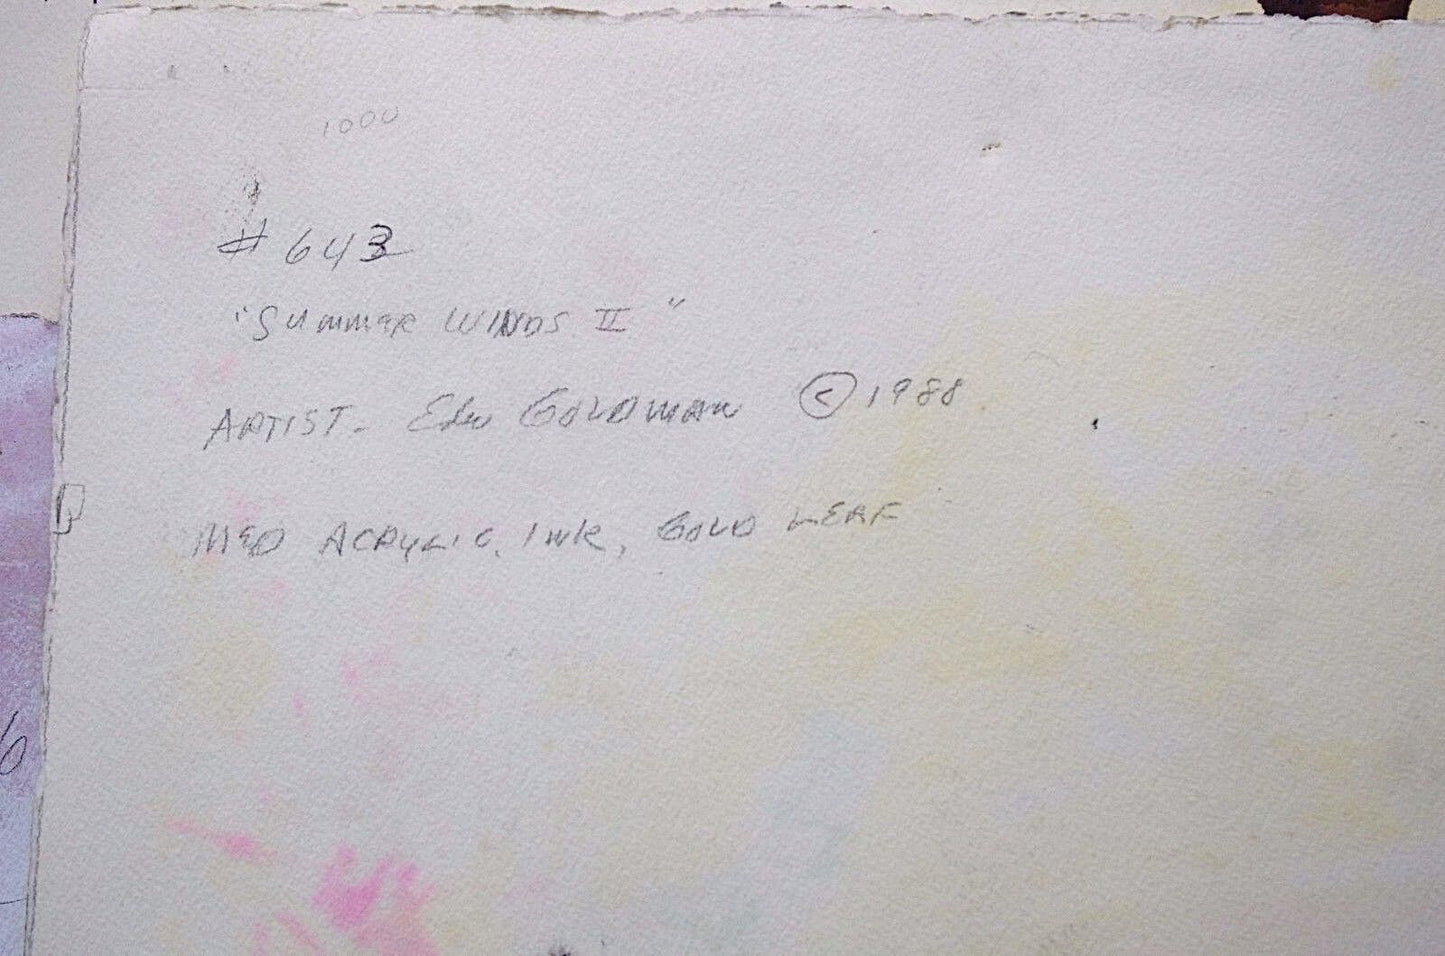 1000
# 643
"Summer Winds II"
Artist - Edw Goldman © 1988
Med Acrylic, Ink, Gold Leaf
6